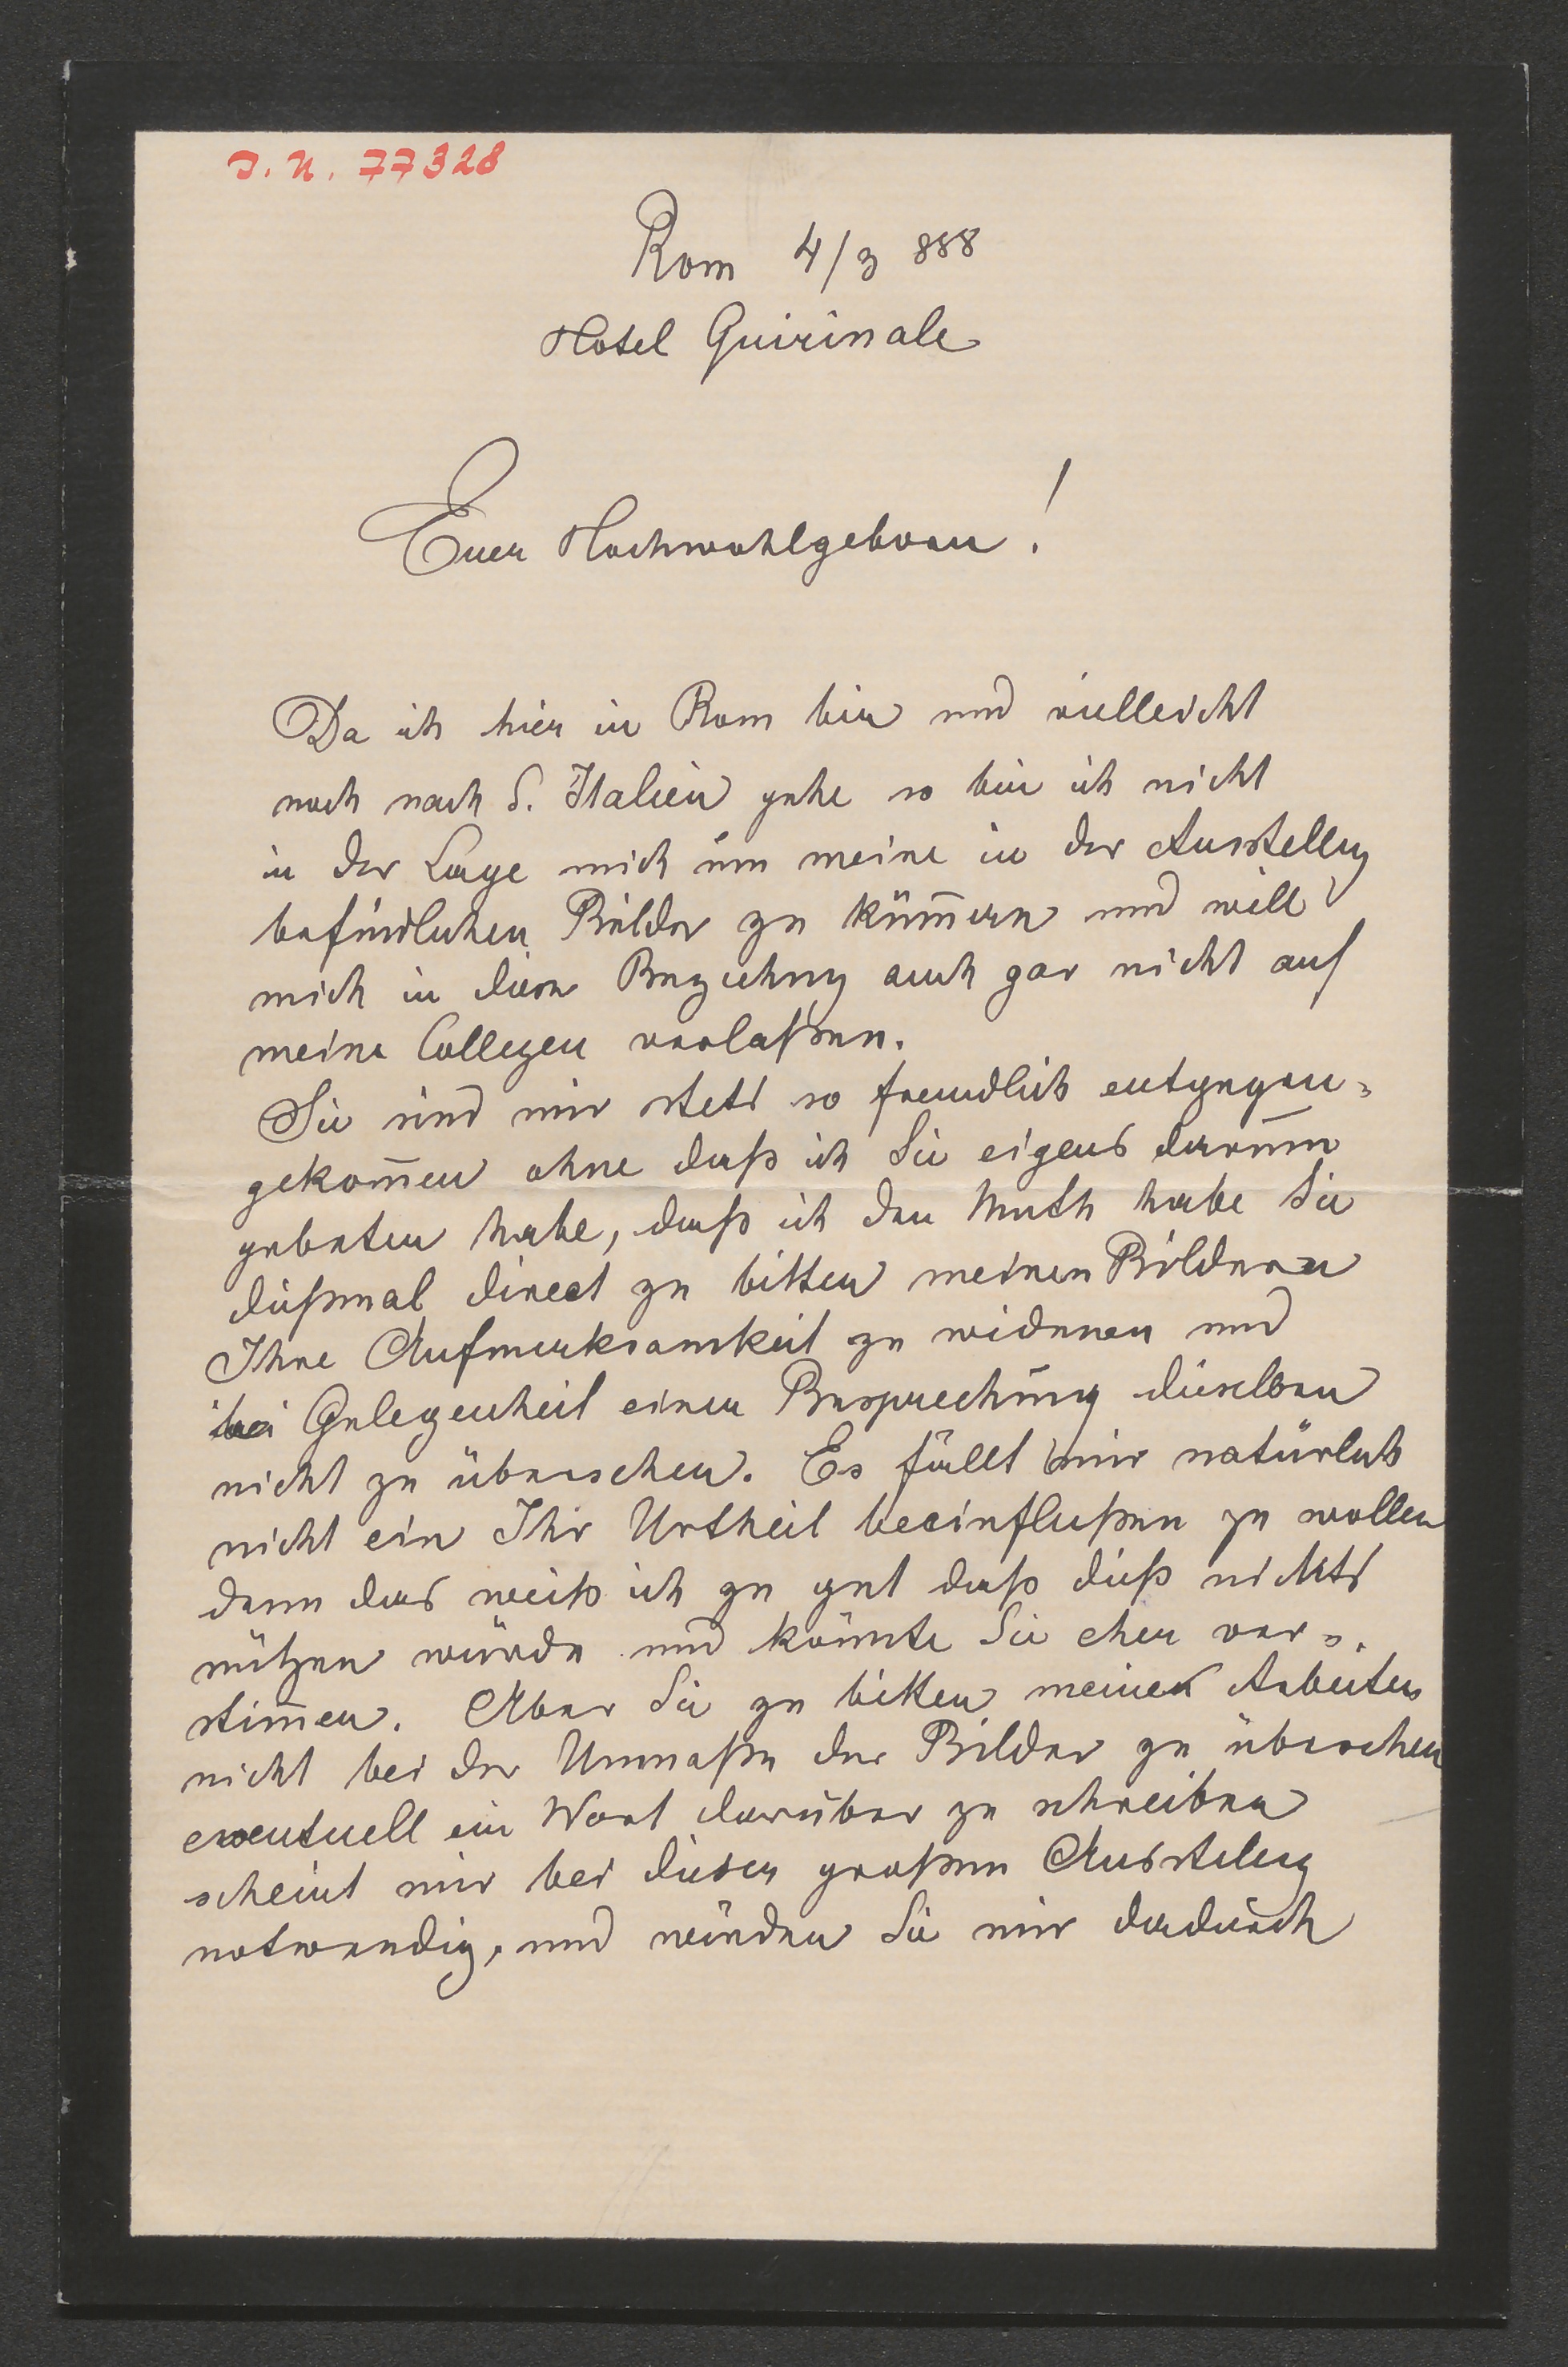 J. N. 77328
Rom 4/3 888
Hotel Quirinale
Euer Hochwohlgeboren!
Da ich hier in Rom bin und vielleicht
noch nach S. Italien gehe so bin ich nicht
in der Lage mich um meine in der Ausstellung
befindlichen Bilder zu kümm̄ern und will
mich in dieser Beziehung auch gar nicht auf
meine Collegen verlaßen.
Sie sind mir stets so freundlich entgegen-
gekom̄en ohne daß ich Sie eigens darum
gebeten habe, daß ich den Muth habe Sie
dießmal direct zu bitten meinen Bildern
Ihre Aufmerksamkeit zu widmen und
bei Gelegenheit einer Besprechung dieselben
nicht zu übersehen. Es fällt mir natürlich
nicht ein Ihr Urtheil beeinflußen zu wollen
denn das weiß ich zu gut daß dieß nichts
nützen würde und könnte Sie eher ver-
stim̄en. Aber Sie zu bitten meine Arbeiten
nicht bei der Unmaße der Bilder zu übersehen
eventuell ein Wort darüber zu schreiben
scheint mir bei dieser großen Ausstellung
notwendig, und würden Sie mir dadurch